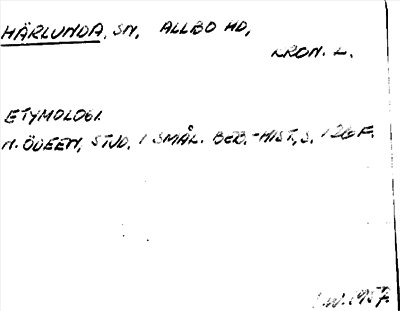 HÄRLUNDA, SN, ALLBO HD,
KRON. L.
ETYMOLOGI.
N. ÖDEEN, STUD. I SMÅL. BEB.-HIST, S. 126 F.
1957.